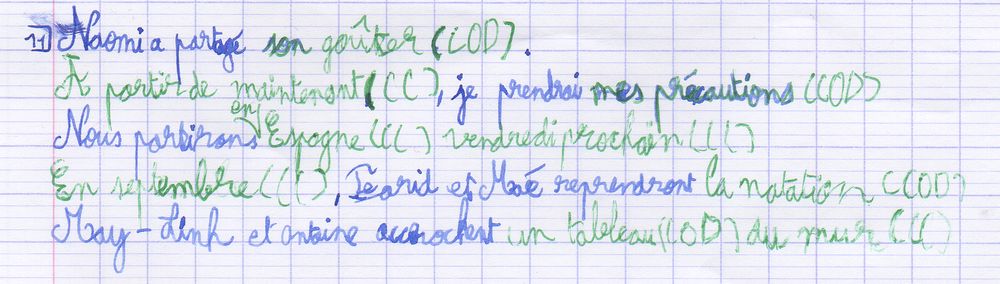 11) Naomi a partagé son goûter (COD).
À partir de maintenant (CC), je prendrai mes précautions (COD)
Nous partirons en Espagne (CC) vendredi prochain (CC)
En septembre (CC), Farid et Maé reprendront la natation (COD)
May-Linh et antoine accrochent un tableau (COD) du mur (CC)